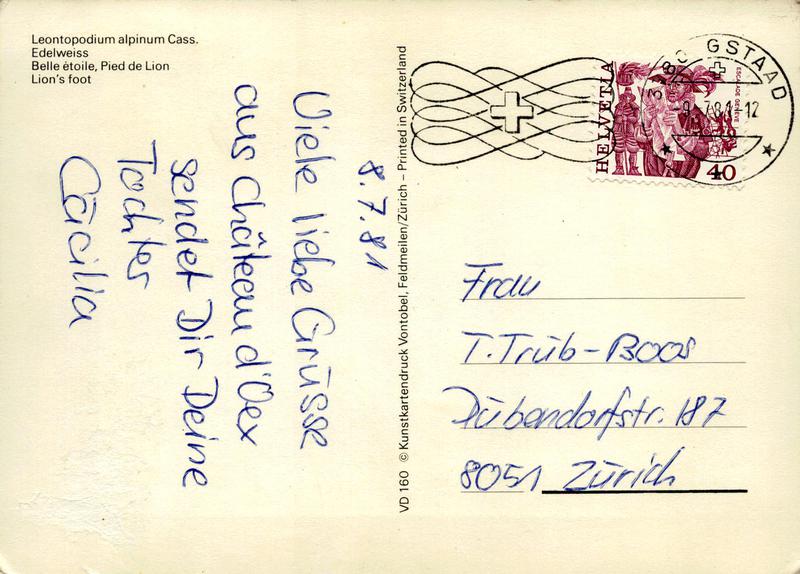 Leontopodium alpinum Cass.
Edelweiss
Belle étoile, Pied de Lion
Lion's foot
8.7.81
Viele liebe Grüsse
aus Château d'Oex
sendet Dir Deine
Tochter
Cäcilia
VD 160 © Kunstkartendruck Vontobel, Feldmeilen/Zürich – Printed in Switzerland
HELVETIA
ESCALADE GENÈVE
40
3780 GSTAAD
-9.-7.81-12
Frau
T. Trüb-Boos
Dübendorfstr. 187
8051 Zürich